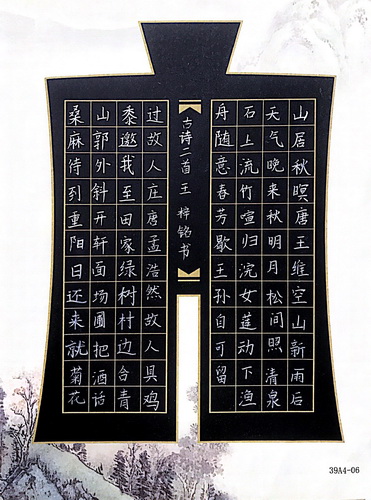 山居秋暝唐王维空山新雨后
天气晚来秋明月松间照清泉
石上流竹喧归浣女莲动下渔
舟随意春芳歇王孙自可留
古诗二首 王梓铭书
过故人庄唐孟浩然故人具鸡
黍邀我至田家绿树村边合青
山郭外斜开轩面场圃把酒话
桑麻待到重阳日还来就菊花
39A4-06